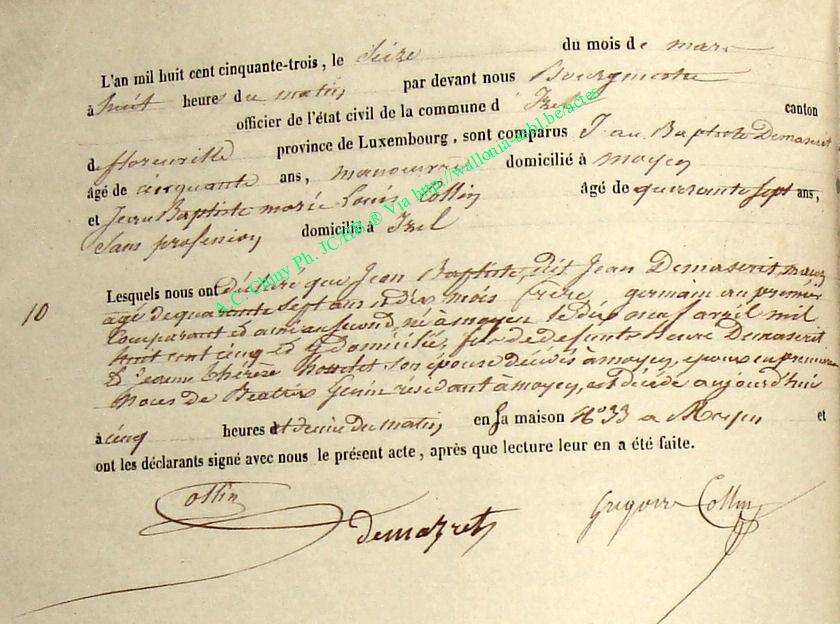 L'an mil huit cent cinquante-trois, le seize du mois de mars
à huit heures du matin par devant nous Bourgmestre
officier de l'état civil de la commune d'Izel canton
de florenville province de Luxembourg, sont comparus Jean Baptiste Demasret
âgé de cinquante ans, manoeuvre domicilié à moyen
et Jean Baptiste marie Louis Collin âgé de quarante sept ans,
sans profession domicilié à Izel
Lesquels nous ont déclaré que Jean Baptiste, dit Jean Demasrit,
10
agé de quarante sept ans et dix mois frère germain au premier
comparant et ami au second, né à moyen le dix neuf avril mil
huit cent cinq et y domicilié, fils de defunts Demasrit
& jeanne thérèse son épouse décédés à moyen, époux en premiere
noces de Beatrix Genin résidant à moyen, est décédé aujourd'hui
à cinq heures et demie du matin en sa maison N° 33 a Moyen et
ont les déclarants signé avec nous le présent acte, après que lecture leur en a été faite.
Collin
demazret
Grégoire Collin
A.C. Chiny Ph. JC Via http://wallonia-asbl.be/actes